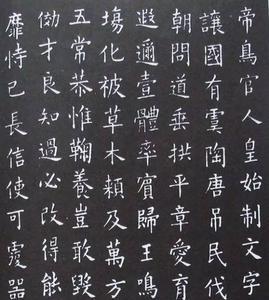 帝鳥官人皇始制文字
讓國有虞陶唐吊民伐
朝問道垂拱平章愛育
遐邇壹體率賓歸王鳴
塲化被草木頼及萬方
五常恭惟鞠養豈敢毀
効才良知過必改得能
靡恃己長信使可覆器